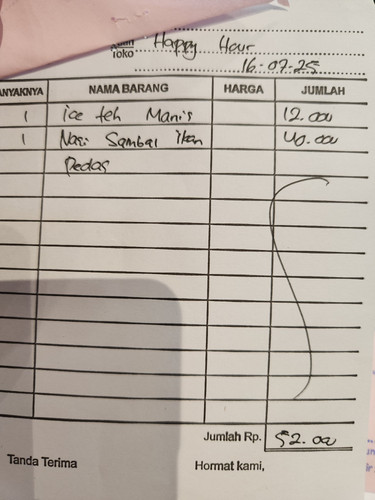 Happy Hour
Toko
16-07-25
ANYAKNYA NAMA BARANG HARGA JUMLAH
1 ice teh Manis 12.000
1 Nasi Sambal ikan 40.000
Pedas
Jumlah Rp. 52.000
Tanda Terima Hormat kami,